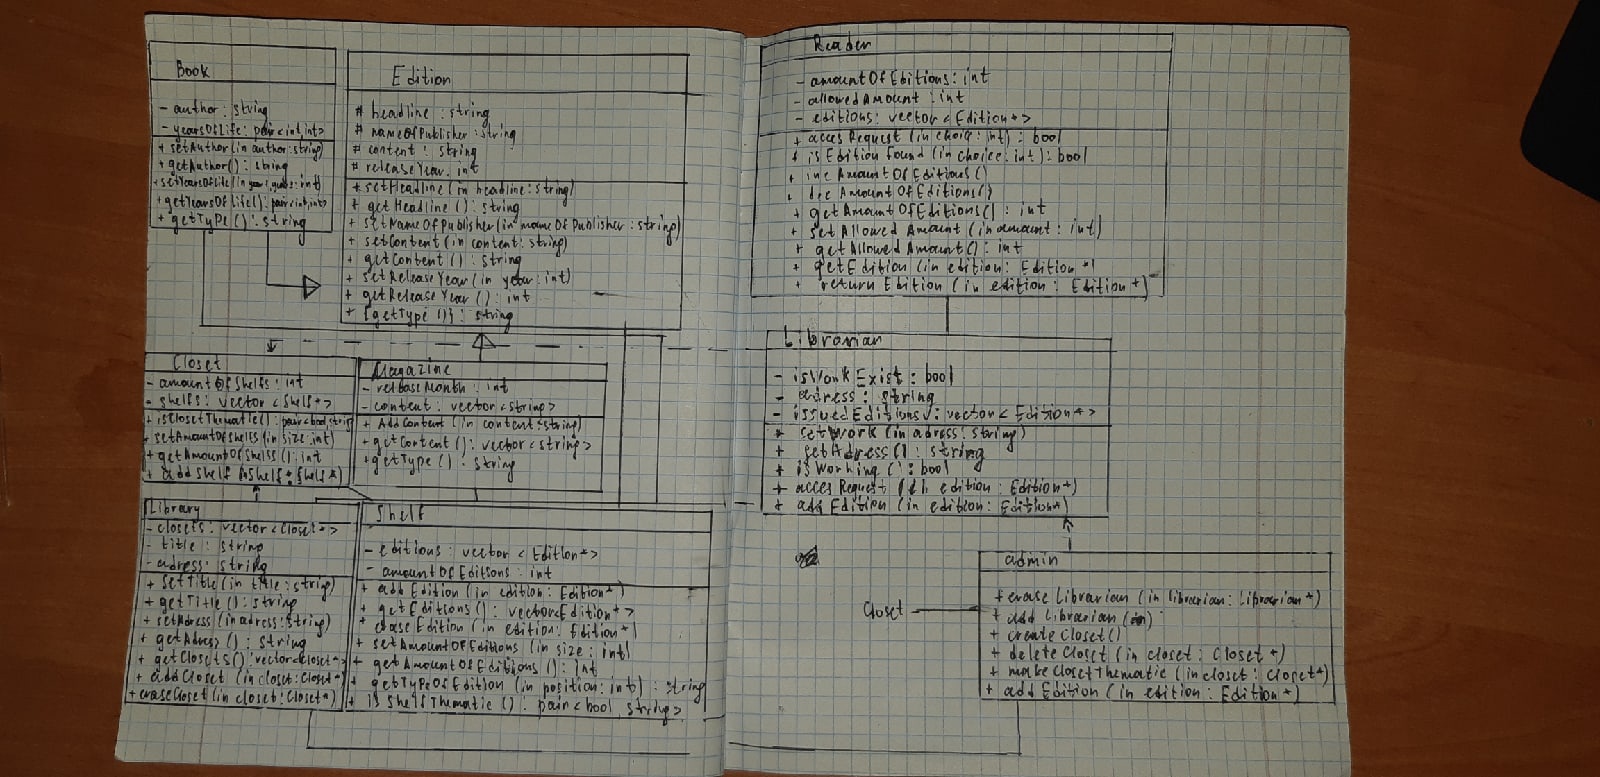 Book
- author: string
- yearsOfLife: pair<int,int>
+ setAuthor(in author:string)
+ getAuthor(): string
+ setYearsOfLife(in year: int)
+ getYearsOfLife(): pair<int,int>
+ getType(): string
Edition
# headline: string
# nameOfPublisher: string
# content: string
# releaseYear: int
+ setHeadline(in headline:string)
+ getHeadline(): string
+ setNameOfPublisher(in nameOfPublisher: string)
+ setContent(in content: string)
+ getContent(): string
+ setReleaseYear(in year: int)
+ getReleaseYear(): int
+ {getType()}: string
Closet
- amountOfShelfs: int
- shelfs: vector<Shelf*>
+ isClosetThematic(): pair<bool,string
+ setAmountOfShelfs(in size:int)
+ getAmountOfShelfs(): int
+ addShelf Shelf: Shelf*)
Magazine
- releaseMonth: int
- content: vector<string>
+ AddContent(in content:string)
+ getContent(): vector<string>
+ getType(): string
Library
- closets: vector<Closet*>
- title: string
- adress: string
+ setTitle(in title:string)
+ getTitle(): string
+ setAdress(in adress:string)
+ getAdress(): string
+ getClosets():vector<Closet*>
+ addCloset (in closet:Closet*)
+ eraseCloset(in closet:Closet*)
Shelf
- editions: vector<Edition*>
- amountOfEditions: int
+ addEdition(in edition: Edition*)
+ getEditions(): vector<Edition*>
+ eraseEdition(in edition: Edition*)
+ setAmountOfEditions(in size: int)
+ getAmountOfEditions(): int
+ getTypeOfEdition(in position: int): string
+ isShelfThematic(): pair<bool, string>
Reader
- amountOfEditions: int
- allowedAmount: int
- editions: vector<Edition*>
+ accesRequest(in choice: int): bool
+ isEditionFound(in choice: int): bool
+ incAmountOfEditions()
+ decAmountOfEditions()
+ getAmountOfEditions(): int
+ setAllowedAmount(in amount: int)
+ getAllowedAmount(): int
+ getEdition(in edition: Edition*)
+ returnEdition(in edition: Edition*)
Librarian
- isWorkExist: bool
- adress: string
- issuedEditions: vector<Edition*>
+ setWork(in adress: string)
+ getAdress(): string
+ isWorking(): bool
+ accesRequest(in edition: Edition*)
+ addEdition(in edition: Edition*)
admin
+ eraseLibrarian(in librarian: Librarian*)
Closet
+ addLibrarian(in)
+ createCloset()
+ deleteCloset(in closet: Closet*)
+ makeClosetThematic(in closet: Closet*)
+ addEdition(in edition: Edition*)